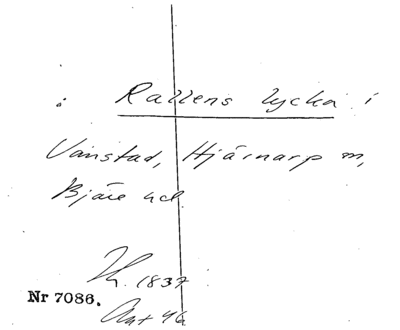 Rallens lycka i
Vanstad, Hjärnarp sn,
Bjäre hd
1837
Nr 7086.
Ant 46